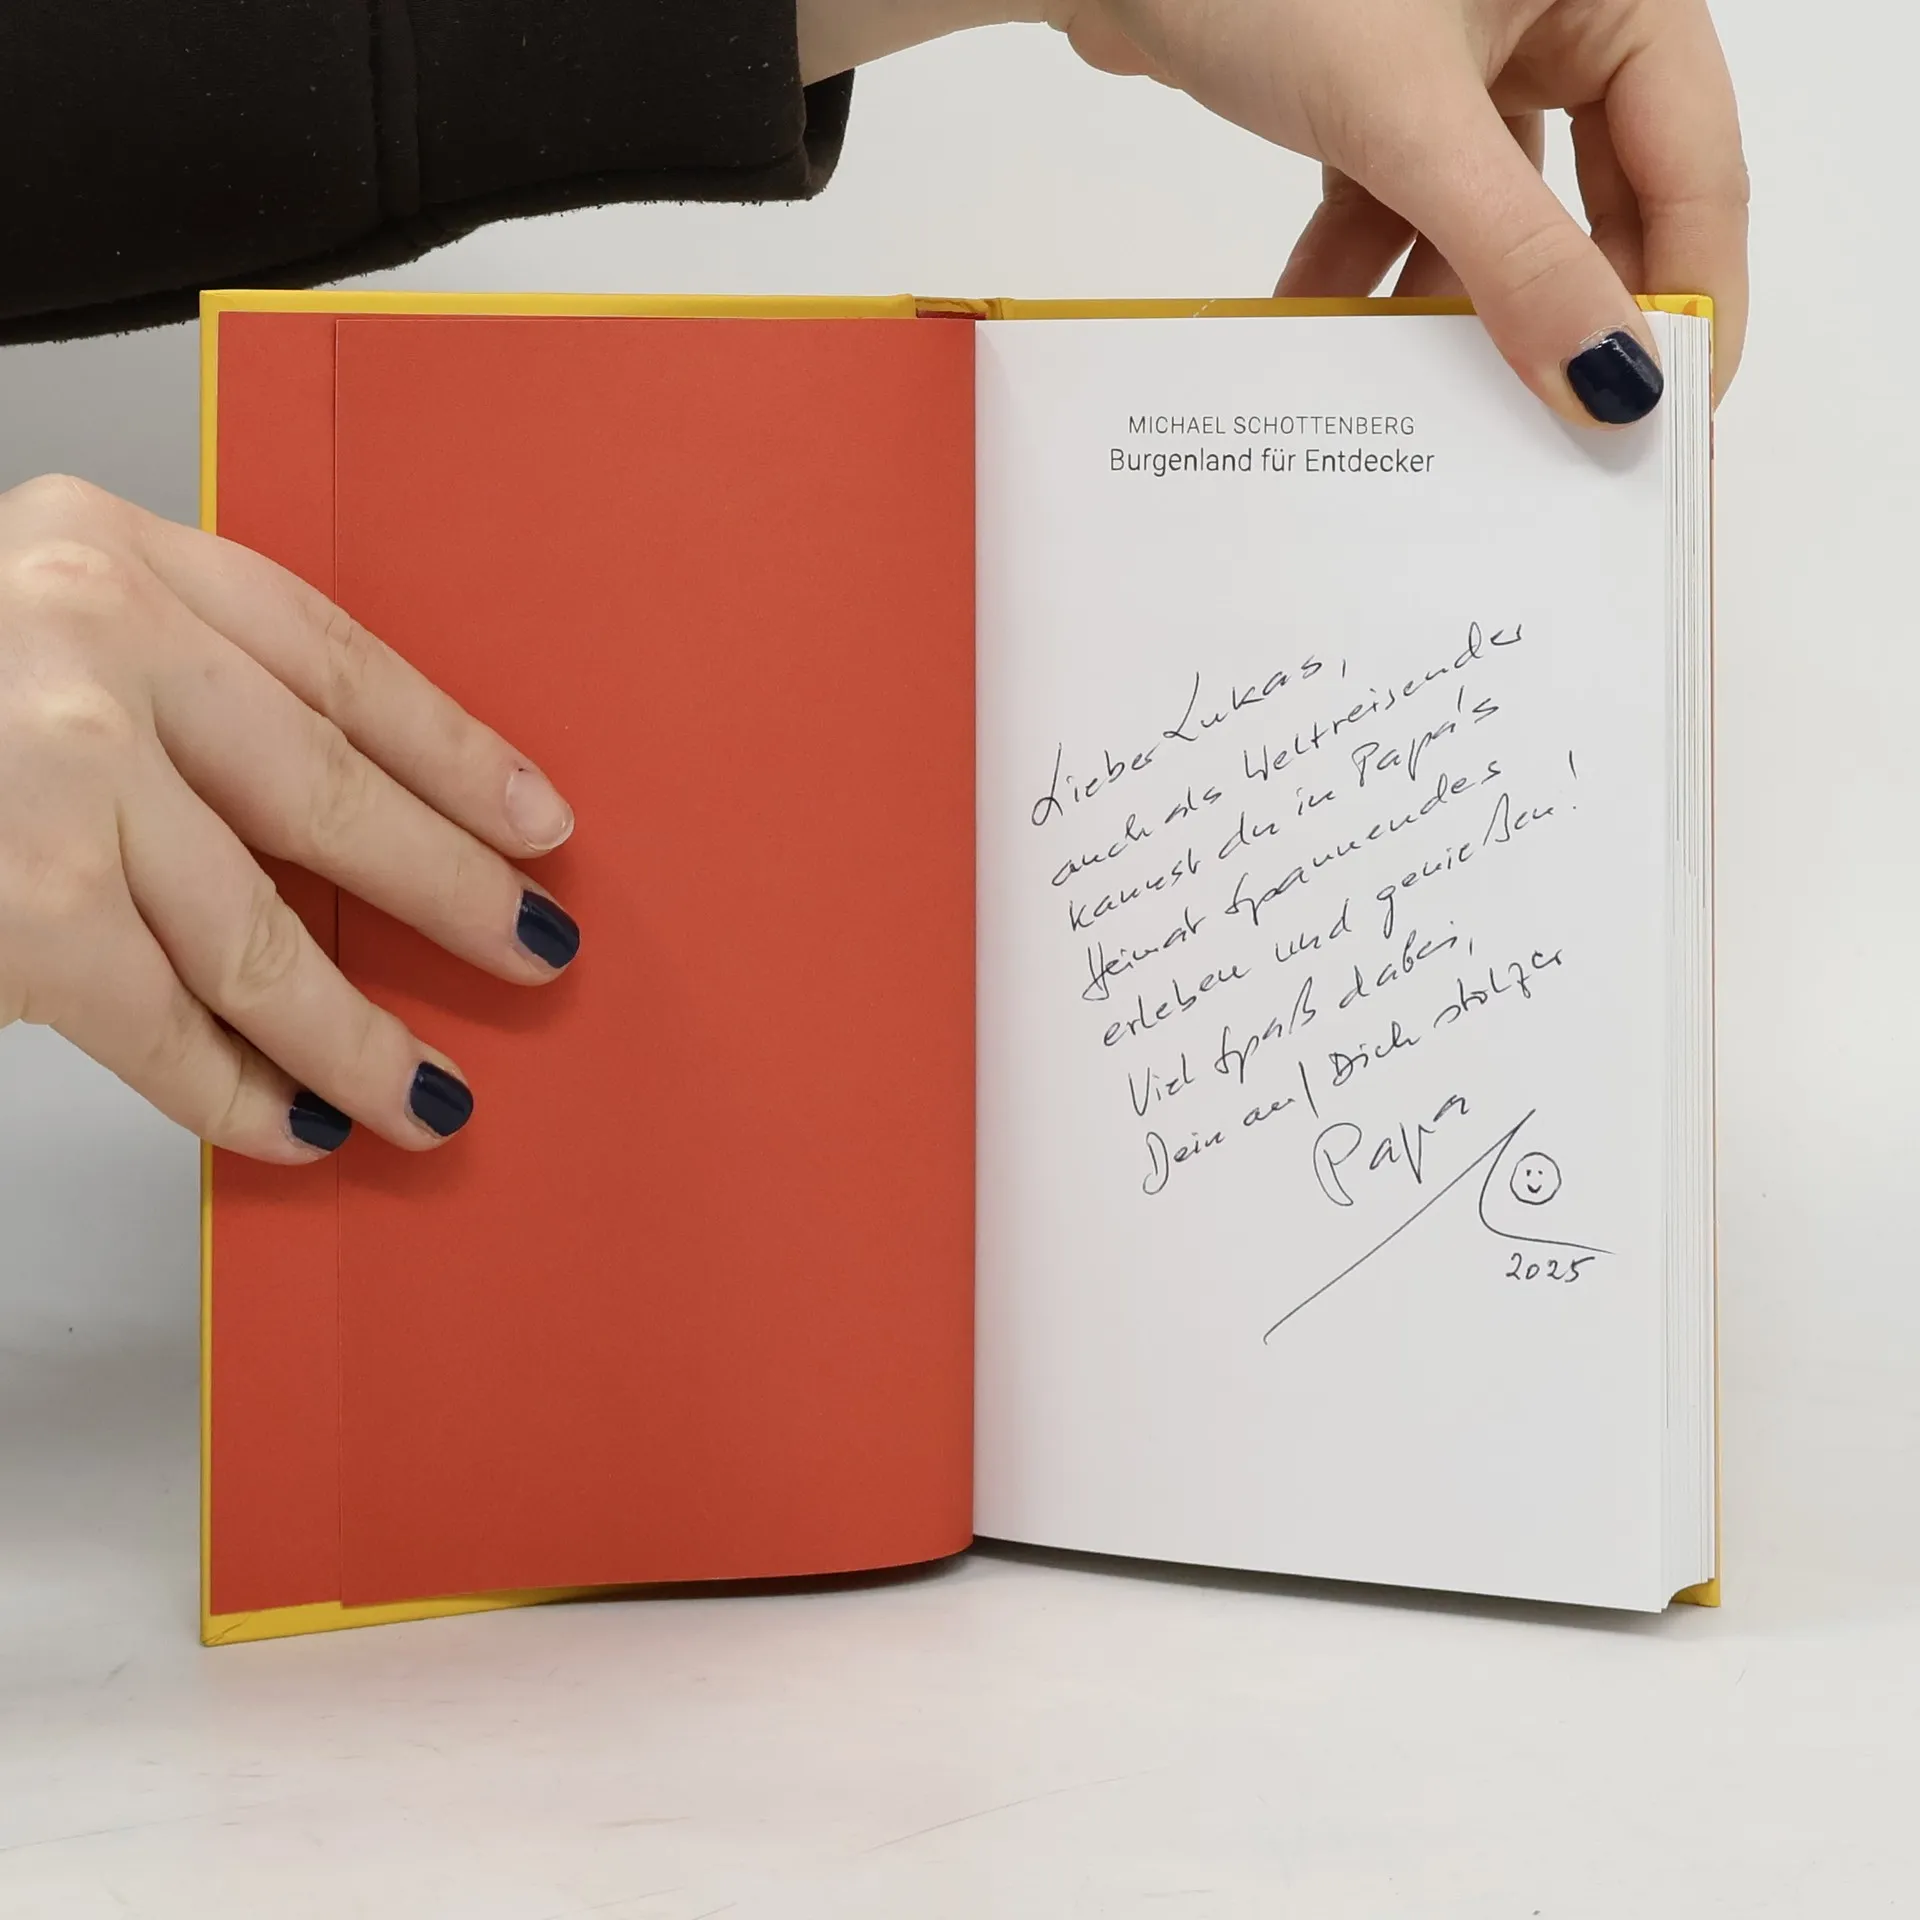 MICHAEL SCHOTTENBERG
Burgenland für Entdecker
Lieber Lukas,
auch als Weltreisender
kannst du in Papa's
Heimat Spannendes
erleben und genießen!
Viel Spaß dabei,
Dein auf Dich stolzer
Papa
2025